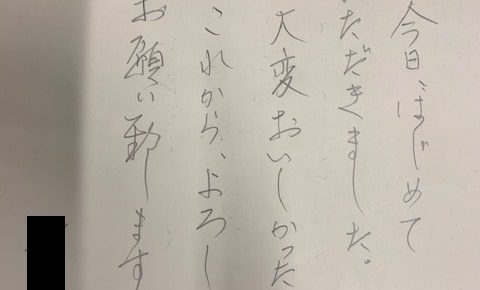 今日、はじめて
ただきました。
大変おいしかった
これから、よろし
お願い致します